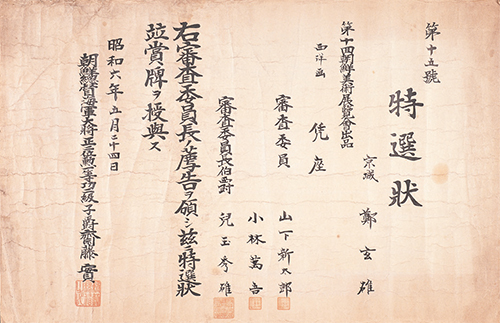 第十五號
特選狀
京城 鄭玄雄
第十回朝鮮美術展覽會出品
西洋画 凭座
審査委員 山下新太郎
小林萬吾
審査委員長伯爵 兒玉秀雄
右審査委員長ノ薦告ヲ領シ玆ニ特選狀
竝賞牌ヲ授與ス
昭和六年五月二十四日
朝鮮總督海軍大將正二位勳一等功二級子爵齋藤實